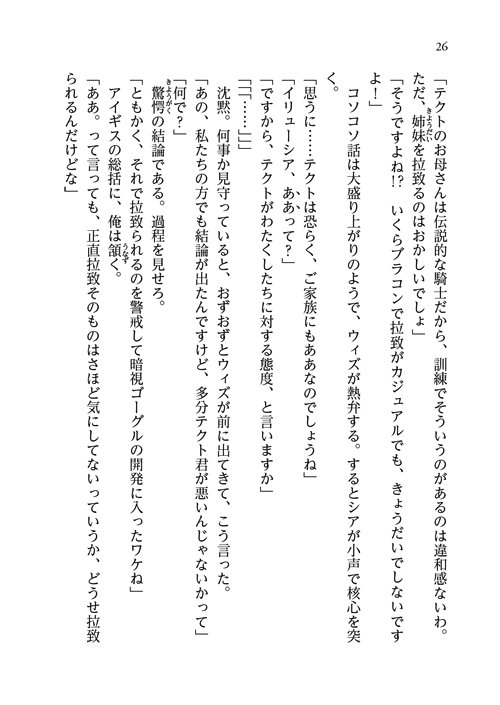 26
「テクトのお母さんは伝説的な騎士だから、訓練でそういうのがあるのは違和感ないわ。
ただ、姉妹を拉致るのはおかしいでしょ」
「そうですよね!? いくらブラコンで拉致がカジュアルでも、きょうだいでしないです
よ！」
コソコソ話は大盛り上がりのようで、ウィズが熱弁する。するとシアが小声で核心を突
く。
「思うに……テクトは恐らく、ご家族にもああなのでしょうね」
「イリューシア、ああって？」
「ですから、テクトがわたくしたちに対する態度、と言いますか」
「「……」」
沈黙。何事か見守っていると、おずおずとウィズが前に出てきて、こう言った。
「あの、私たちの方でも結論が出たんですけど、多分テクト君が悪いんじゃないかって」
「何で？」
驚愕の結論である。過程を見せろ。
「ともかく、それで拉致られるのを警戒して暗視ゴーグルの開発に入ったワケね」
アイギスの総括に、俺は頷く。
「ああ。って言っても、正直拉致そのものはさほど気にしてないっていうか、どうせ拉致
られるんだけどな」